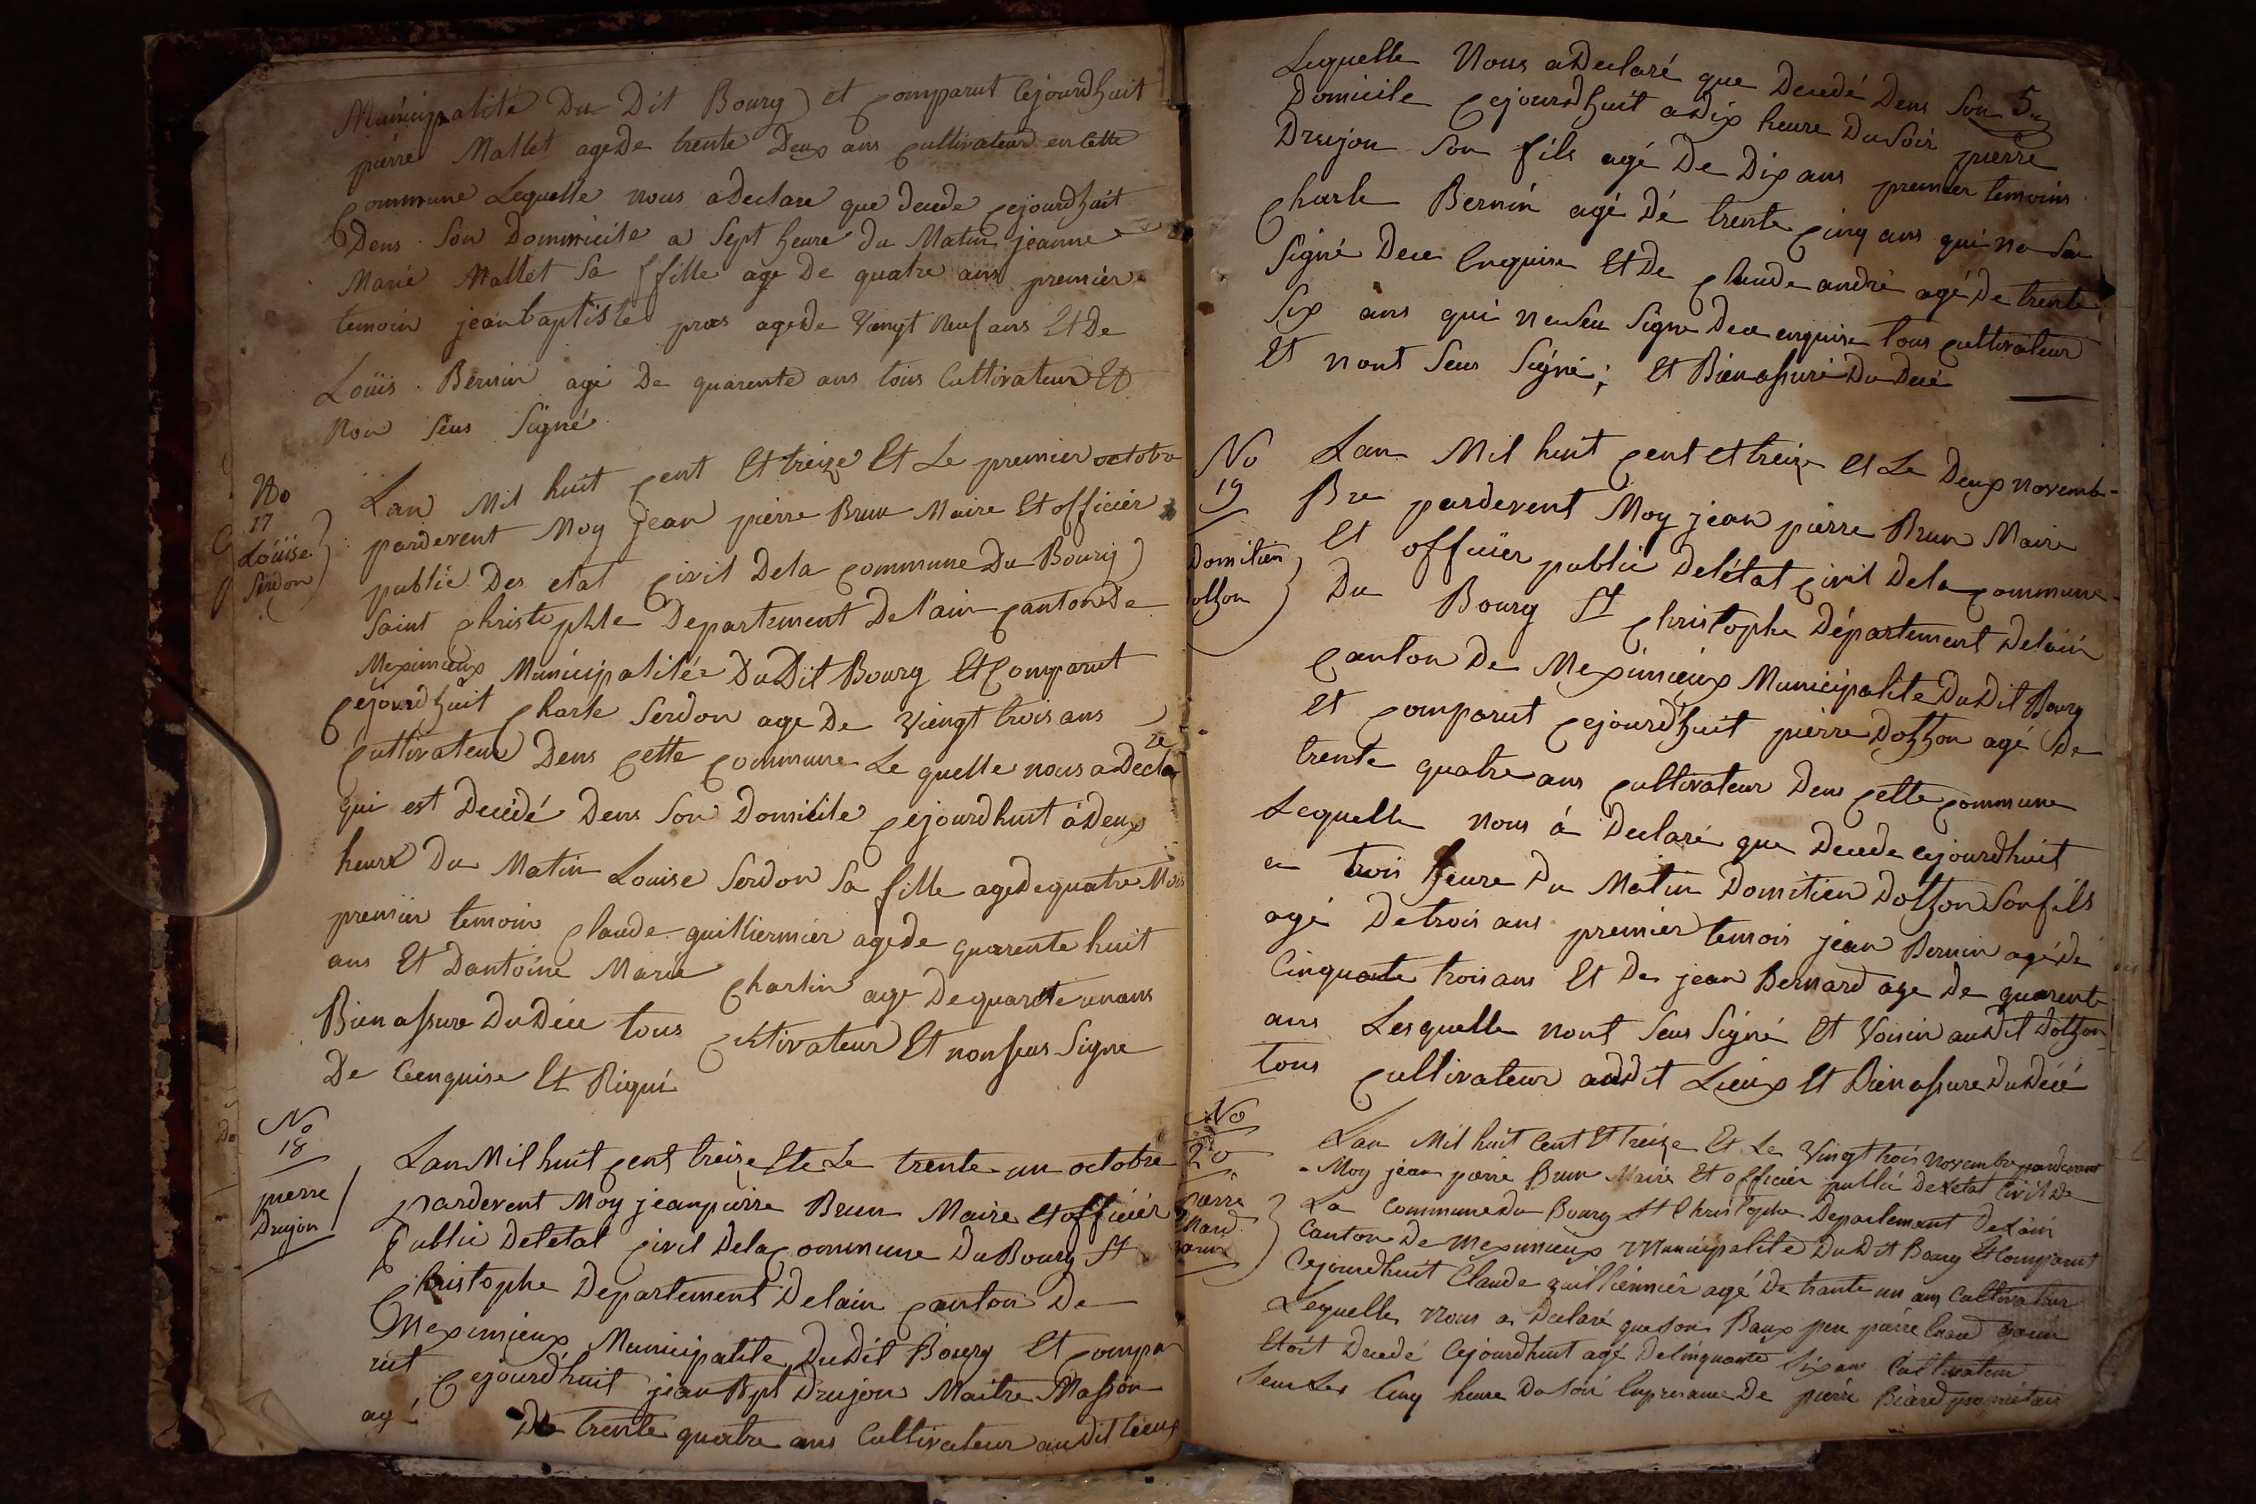 Municipalité Du Dit Bourg et comparut Cejourdhuit
pierre Mallet agé De trente Deux ans cultivateur en Cette
commune Lequelle nous a Declare que decede cejourdhuit
Dens Son Dommicile a Sept heure du Matin jeanne
Marie Mallet Sa ffille age De quatre ans premier
temoin jean baptiste pros age De Vengt Neuf ans Et De
Loüis Bernin agé De quarente ans tous Cultivateur Et
Non Seus Signé
No
17
Loüise
Serdon
Lan Mil huit cent Et treize Et Le premier octobre
pardevent Moy jean pierre Brun Maire Et officier
public Des etat civil Dela commune Du Bourg
Saint christophle Departement De l'ain canton De
Meximieux Municipalitée Du Dit Bourg Et Comparut
cejourdhuit charle Serdon age De Viengt trois ans
cultivateur Dens cette commune Le quelle nous a Decla
re
qui est Decédé Dens Son Domicile cejourdhuit à Deux
heure Du Matin Louise Serdon Sa fille age De quatre Mois
premier temoin claude guilliermier age de quarente huit
ans Et Dantoine Marie charlin age De quarente un ans
Bien assure Du Décé tous cultivateur Et non seus Signe
De Ceenquise Et Riqui
No
18
pierre
Drujon
Lan Mil huit cent treize Et Le trente un octobre
pardevent Moy jean pierre Brun Maire et officier
Public De letat civil Dela commune Du Bourg St
christophe Departement De lain canton De
Meximieux Municipalite Du Dit Bourg Et compa
rut cejourdhuit jean Bpt Drujon Maitre Masson
agé De trente quatre ans Cultivateur au Dit Lieux
5
Lequelle Nous a Declaré que Decedé Dens Son
Domicile cejourdhuit a Dix heure Du Soir pierre
Drujon Son fils agé De Dix ans premier temoins
charle Bernin agé Dé trente cinq ans qui ne Seu
Signé Dece Enquise Et De claude andré agé De trente
Six ans qui ne Seu Signe Dece enquise tous cultivateur
Et nont Seus Signé; Et Bien assuré Du Decé
No
19
Domitien
Dotzon
Lan Mil huit cent et treize et Le Deux novemb-
Bre pardevent Moy jean pierre Brun Maire
Et officier public De létat civil De la commune
Du Bourg St christophe Département De lain
canton De Meximieux Municipalite Du Dit Bourg
Et comparut cejourdhuit pierre Dotzon agé De
trente quatre ans cultivateur Dens cette commune
Lequelle nous á Declaré que Decede cejourdhuit
a trois heure Du Matin Domitien Dotzon Son fils
agé De trois ans premier temoin jean Bernin agé de
Cinquante trois ans Et De jean Bernard age De quarente
ans Lesquelle nont Seus Signé Et Voisin au Dit Dotzon
tous cultivateur au Dit Lieux Et Bien assure Du Décé
No
20
pierre
Lan Mil huit Cent Et treize Et Le Vingt trois Novembre pardevant
Moy jean pierre Brun Maire Et officier public De letat Civil De
La Commune Du Bourg St Christophe Departement De lain
Canton De Meximieux Municipalite Du Dit Bourg Et Comparut
Cejourdhuit Claude guilliermier agé De trante un ans Cultivateur
Lequelle Nous a Declaré que Son Baux pere pierre
Etoit Decedé Cejourdhuit agé De Cinquante Six ans Cultivateur
Seur Les Cinq heure Du Soir Enpresance De pierre Biard propriétaire